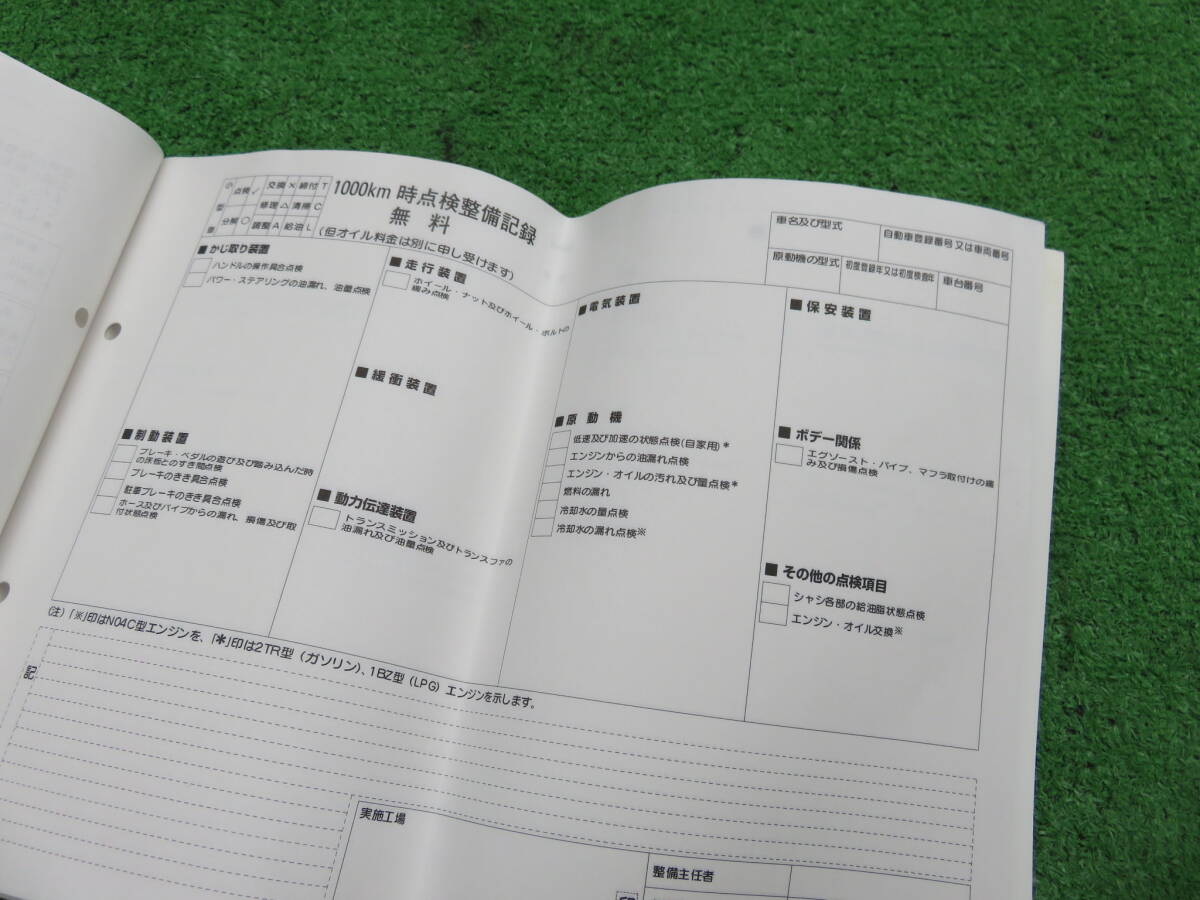 小型車
点検✓ 交換× 締付T
修理△ 清掃C
分解○ 調整A 給油L
1000km 時点検整備記録
無料
(但オイル料金は別に申し受けます)
車名及び型式
自動車登録番号又は車両番号
原動機の型式
初度登録年又は初度検査年
車台番号
■かじ取り装置
ハンドルの操作具合点検
パワー・ステアリングの油漏れ、油量点検
■制動装置
ブレーキ・ペダルの遊び及び踏み込んだ時
の床板とのすき間点検
ブレーキのきき具合点検
駐車ブレーキのきき具合点検
ホース及びパイプからの漏れ、損傷及び取
付状態点検
■走行装置
ホイール・ナット及びホイール・ボルトの
緩み点検
■緩衝装置
■動力伝達装置
トランスミッション及びトランスファの
油漏れ及び油量点検
■電気装置
■原動機
低速及び加速の状態点検(自家用)*
エンジンからの油漏れ点検
エンジン・オイルの汚れ及び量点検*
燃料の漏れ
冷却水の量点検
冷却水の漏れ点検※
■保安装置
■ボデー関係
エグゾースト・パイプ、マフラ取付けの緩
み及び損傷点検
■その他の点検項目
シャシ各部の給油脂状態点検
エンジン・オイル交換※
(注)「※」印はN04C型エンジンを、「*」印は2TR型(ガソリン)、1BZ型(LPG)エンジンを示します。
記
実施工場
整備主任者